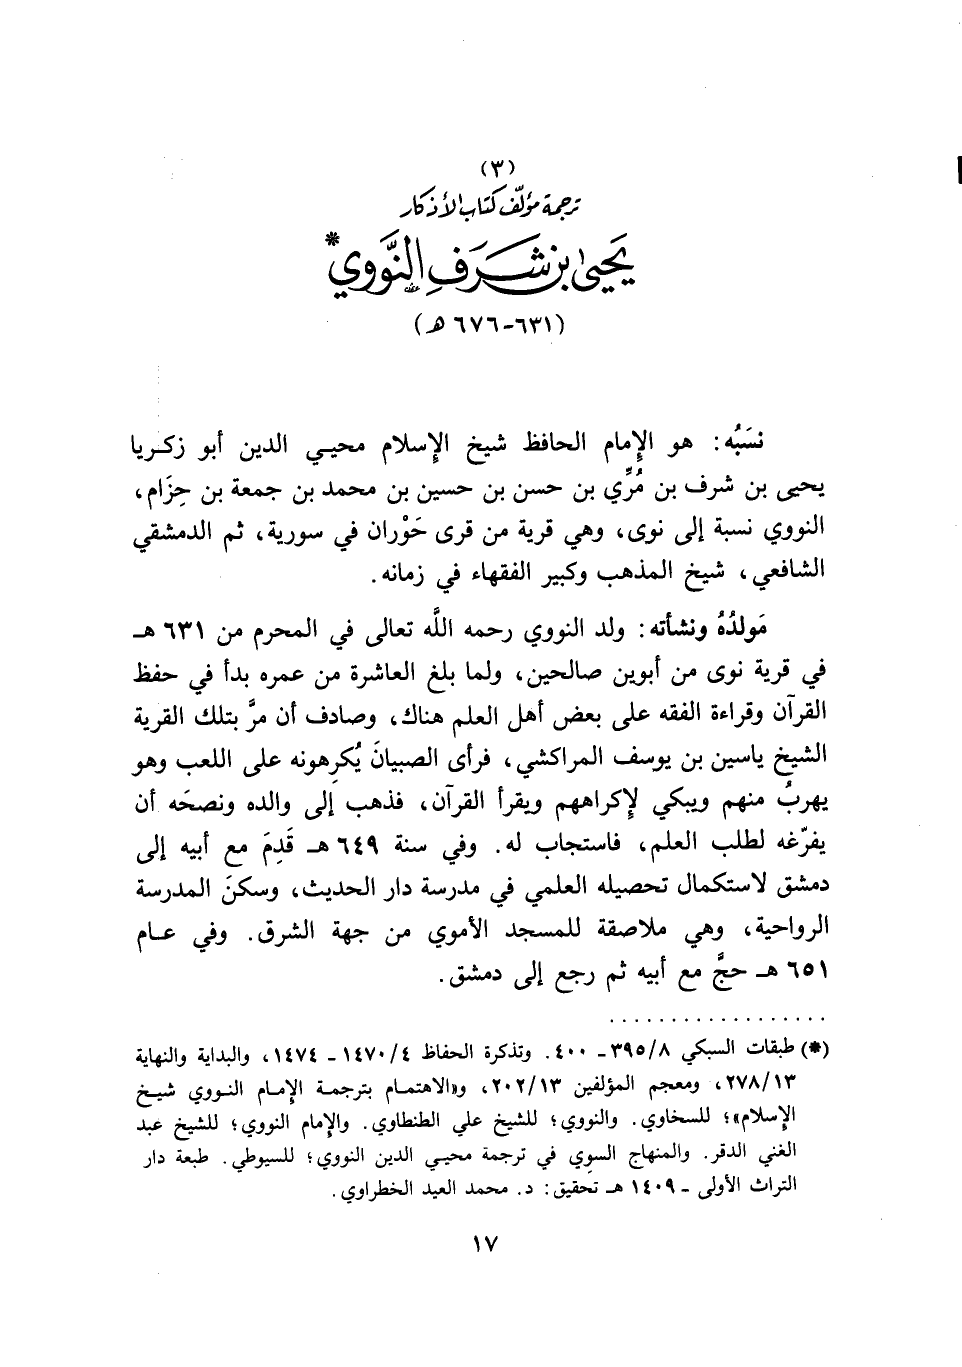 (٣)
ترجمة مؤلّف كتاب الأذكار
يَحيىٰ بن شَرَفِ النَّوَوي*
(٦٣١-٦٧٦ هـ)
نسَبُه: هو الإمام الحافظ شيخ الإسلام محيي الدين أبو زكريا
يحيى بن شرف بن مُرِّي بن حسن بن حسين بن محمد بن جمعة بن حِزَام،
النووي نسبة إلى نوى، وهي قرية من قرى حَوْران في سورية، ثم الدمشقي
الشافعي، شيخ المذهب وكبير الفقهاء في زمانه.
مَولدُهُ ونشأته: ولد النووي رحمه اللَّه تعالى في المحرم من ٦٣١ هـ
في قرية نوى من أبوين صالحين، ولما بلغ العاشرة من عمره بدأ في حفظ
القرآن وقراءة الفقه على بعض أهل العلم هناك، وصادف أن مرَّ بتلك القرية
الشيخ ياسين بن يوسف المراكشي، فرأى الصبيانَ يُكرِهونه على اللعب وهو
يهربُ منهم ويبكي لإكراههم ويقرأ القرآن، فذهب إلى والده ونصحَه أن
يفرّغه لطلب العلم، فاستجاب له. وفي سنة ٦٤٩ هـ قَدِمَ مع أبيه إلى
دمشق لاستكمال تحصيله العلمي في مدرسة دار الحديث، وسكنَ المدرسة
الرواحية، وهي ملاصقة للمسجد الأموي من جهة الشرق. وفي عام
٦٥١ هـ حجَّ مع أبيه ثم رجع إلى دمشق.
..................
(*) طبقات السبكي ٣٩٥/٨ - ٤٠٠. وتذكرة الحفاظ ١٤٧٠/٤ - ١٤٧٤، والبداية والنهاية
٢٧٨/١٣، ومعجم المؤلفين ٢٠٢/١٣، و«الاهتمام بترجمة الإمام النووي شيخ
الإسلام»؛ للسخاوي. والنووي؛ للشيخ علي الطنطاوي. والإمام النووي؛ للشيخ عبد
الغني الدقر. والمنهاج السوي في ترجمة محيي الدين النووي؛ للسيوطي. طبعة دار
التراث الأولى - ١٤٠٩ هـ تحقيق: د. محمد العيد الخطراوي.
١٧